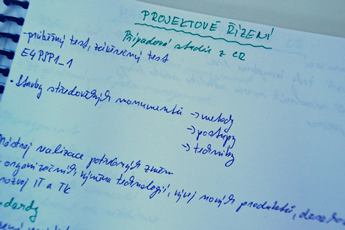 PROJEKTOVÉ ŘÍZENÍ
Případová studie z ČR
- průběžný test, závěrečný test
E4PJP1_1
- Stavby středověkých monumentů → metody
→ postupy
→ techniky
realizace potřebných změn
- organizačních, výrobní technologií, vývoj nových produktů,
rozvoj IT a TK